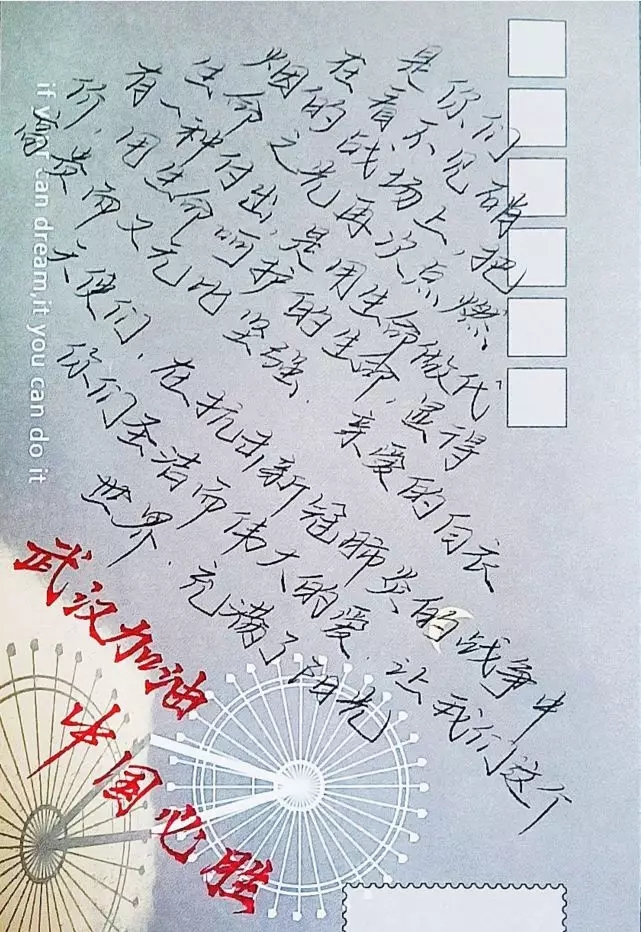 是你们
在看不见硝
烟的战场上,把
生命之光再次点燃
有一种付出,是用生命做代
价,用生命呵护的生命,显得
贵而又无比坚强.亲爱的白衣
天使们,在抗击新冠肺炎的战争中
你们圣洁而伟大的爱,让我们这个
世界,充满了阳光
武汉加油
中国必胜
if your can dream,it you can do it